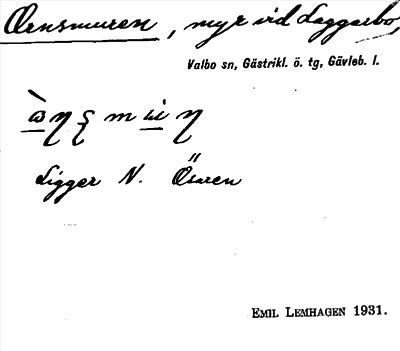 Örnsmuren, myr vid Laggarbo,
Valbo sn, Gästrikl. ö. tg, Gävleb. l.
Ligger N. Ösuren
EMIL LEMHAGEN 1931.